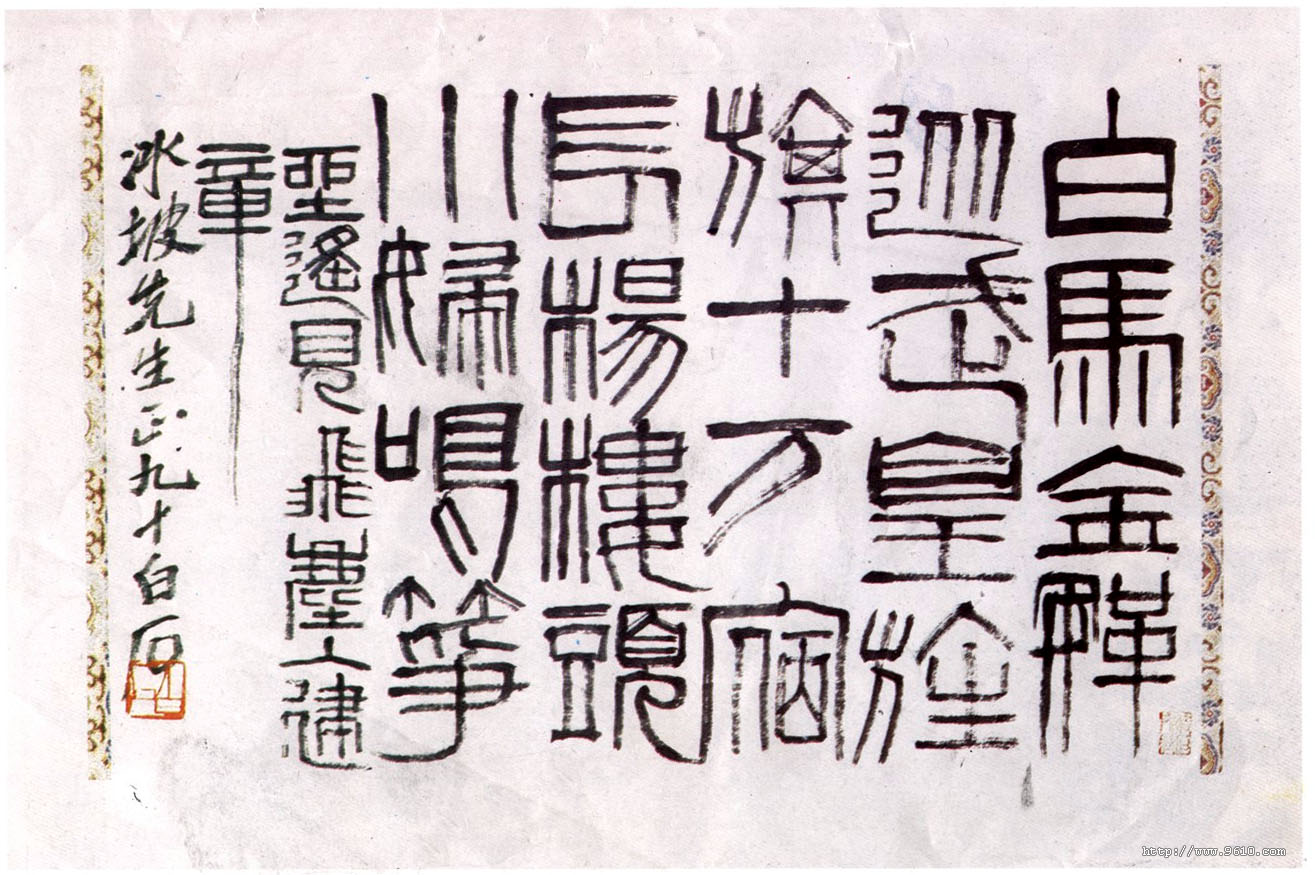 白馬金鞍
從武皇旌
旗十万宿
長楊樓頭
小婦鳴箏
坐遙見飛塵入建
章
冰坡先生正九十白石
http://www.9610.com